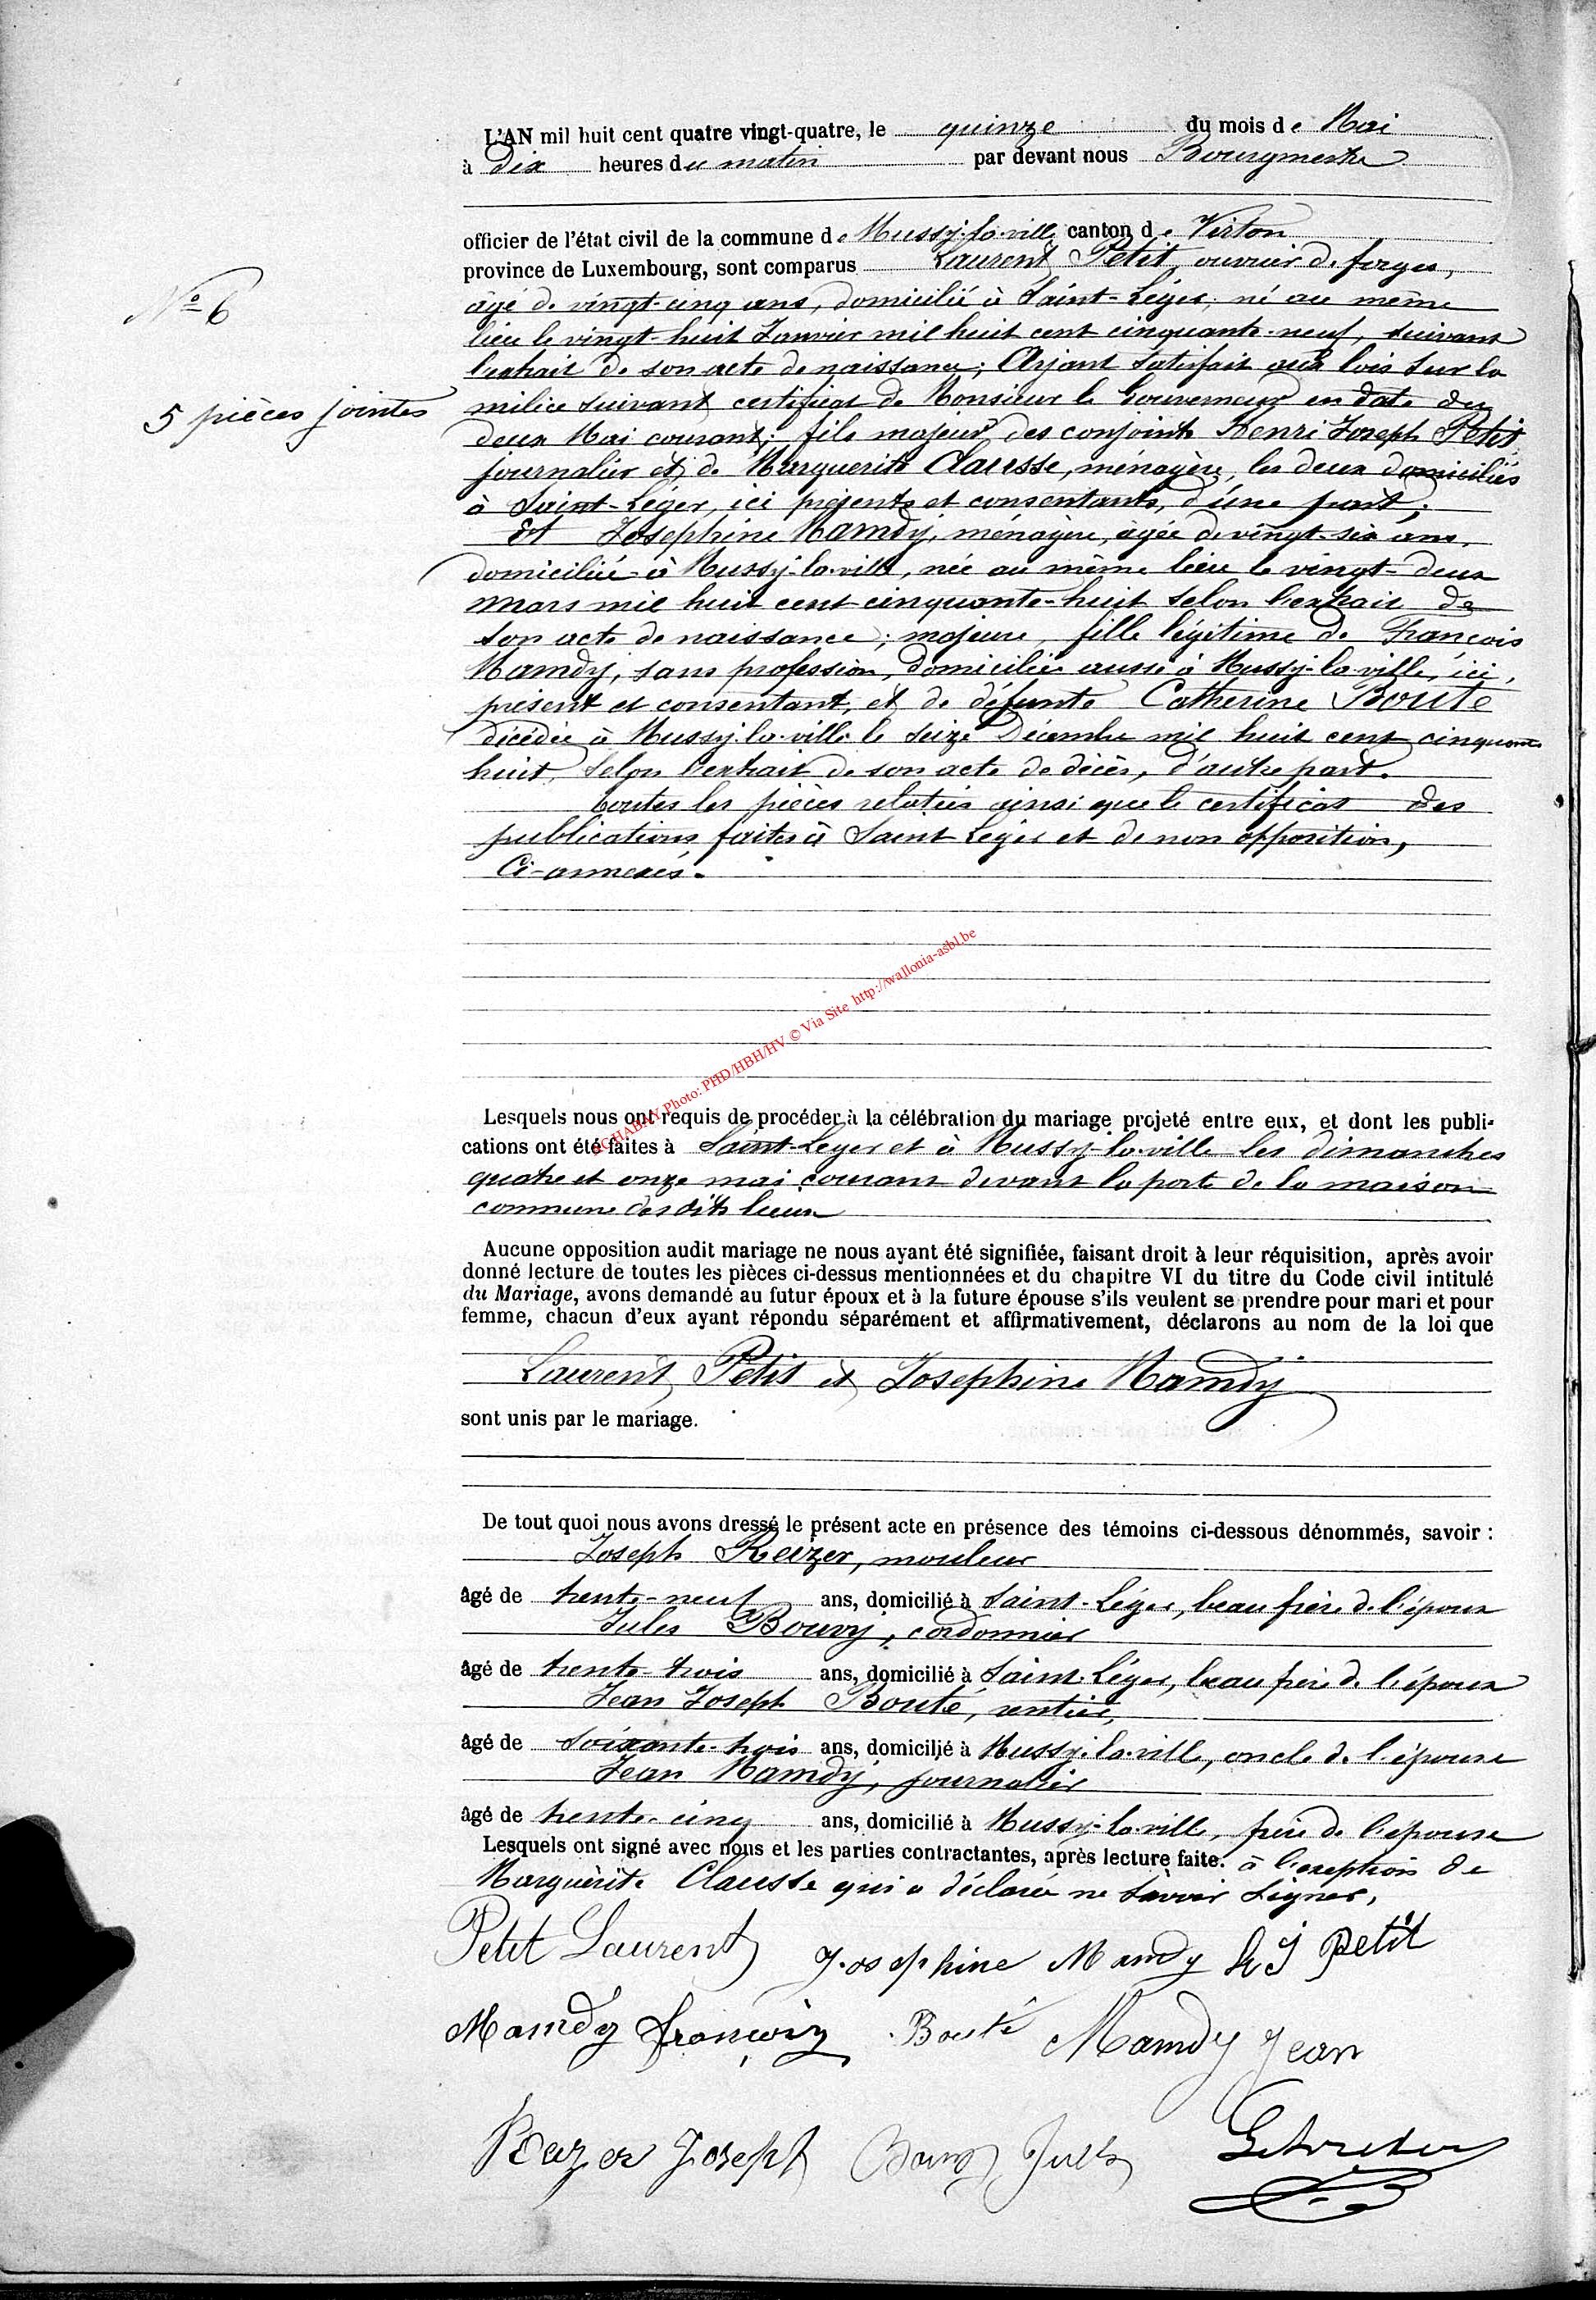 L'AN mil huit cent quatre vingt-quatre, le quinze du mois de Mai
à dix heures du matin par devant nous Bourgmestre
officier de l'état civil de la commune de Mussy-la-ville canton de Virton
province de Luxembourg, sont comparus Laurent Petit, ouvrier de forges,
N° 6
âgé de vingt-cinq ans, domicilié à Saint-Léger, né au même
lieu le vingt-huit Janvier mil huit cent cinquante-neuf, suivant
l'extrait de son acte de naissance; Ayant satisfait aux lois sur la
5 pièces jointes
milice suivant certificat de Monsieur le Gouverneur en date du
deux Mai courant; fils majeur des conjoints Henri Joseph Petit,
journalier et de Marguerite Clausse, ménagère, les deux domiciliés
à Saint-Léger, ici présents et consentants, d'une part;
Et Josephine Mamdy, ménagère, agée de vingt-six ans,
domiciliée à Mussy-la-ville, née au même lieu le vingt-deux
mars mil huit cent cinquante-huit selon l'extrait de
son acte de naissance; majeure, fille légitime de François
Mamdy, sans profession, domicilié aussi à Mussy-la-ville, ici,
présent et consentant, et de défunte Catherine Bouté
décédée à Mussy-la-ville le seize Décembre mil huit cent cinquante
huit, selon l'extrait de son acte de décès, d'autre part.
toutes les pièces relatées ainsi que le certificat des
publications faites à Saint Léger et de non opposition,
Ci-annexés.
Photo: PHD/HBH/HV © Via Site http://wallonia-asbl.be
Lesquels nous ont requis de procéder à la célébration du mariage projeté entre eux, et dont les publi-
cations ont été faites à Saint-Leger et à Mussy-la-ville les dimanches
quatre et onze mai courant devant la porte de la maison
commune des dits lieux
Aucune opposition audit mariage ne nous ayant été signifiée, faisant droit à leur réquisition, après avoir
donné lecture de toutes les pièces ci-dessus mentionnées et du chapitre VI du titre du Code civil intitulé
du Mariage, avons demandé au futur époux et à la future épouse s'ils veulent se prendre pour mari et pour
femme, chacun d'eux ayant répondu séparément et affirmativement, déclarons au nom de la loi que
Laurent Petit et Josephine Mamdy
sont unis par le mariage.
De tout quoi nous avons dressé le présent acte en présence des témoins ci-dessous dénommés, savoir :
Joseph Reizer, mouleur
âgé de trente-neuf ans, domicilié à Saint-Léger, beau frère de l'époux
Jules Bouvy, cordonnier
âgé de trente-trois ans, domicilié à Saint-Léger, beau frère de l'époux
Jean Joseph Bouté, rentier,
âgé de soixante-trois ans, domicilié à Mussy-la-ville, oncle de l'épouse
Jean Mamdy, journalier
âgé de trente-cinq ans, domicilié à Mussy-la-ville, frère de l'épouse
Lesquels ont signé avec nous et les parties contractantes, après lecture faite. à l'exception de
Marguerite Clausse qui a déclarée ne savoir signer,
Petit Laurent Josephine Mamdy h J Petit
Mamdy françois Bouté Mamdy Jean
Joseph Jules